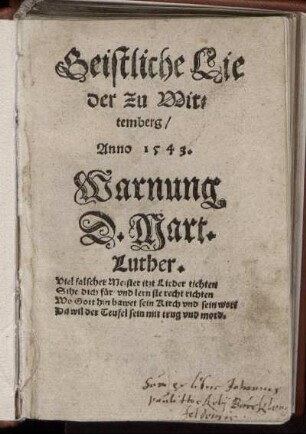 Geistliche Lie
der zu Wit⸗
temberg/
Anno 1543.
Warnung
D. Mart.
Luther.
Viel falscher Meister itzt Lieder tichten
Sihe dich für vnd lern sie recht richten
Wo Gott hin bawet sein Kirch vnd sein wort
Da wil der Teufel sein mit trug vnd mord.
Sum ex libris Johannis